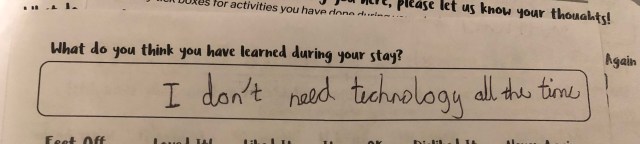 please let us know your thoughts!
boxes for activities you have done
What do you think you have learned during your stay?
Again
I don't need technology all the time
Feet Off